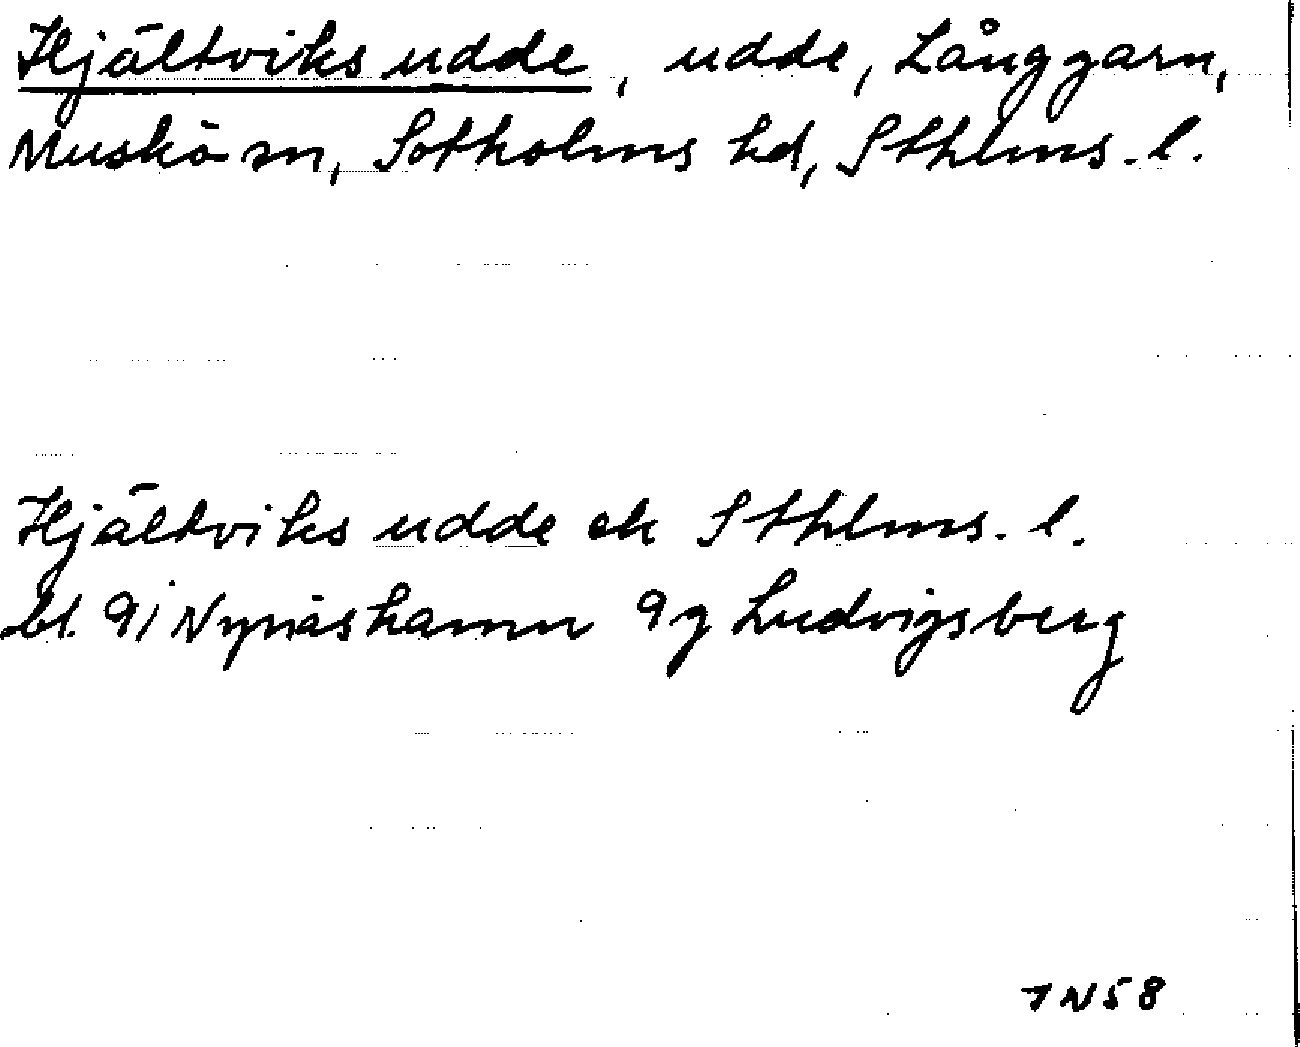 Hjältviks udde, udde, Långgarn,
Muskö sn, Sotholms hd, Sthlms. l.
Hjältviks udde ek Sthlms. l.
bl. 9i Nynäshamn 9g Ludvigsberg
7N58